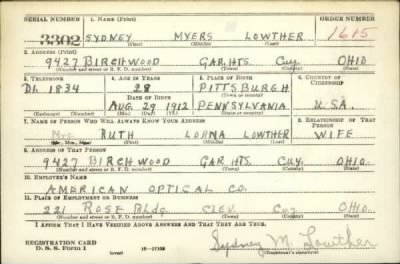 SERIAL NUMBER 1. NAME (Print) ORDER NUMBER
3302 SYDNEY MYERS LOWTHER 1615
(First) (Middle) (Last)
2. ADDRESS (Print)
9427 BIRCHWOOD GAR.HTS. Cuy. OHIO
(Number and street or R. F. D. number) (Town) (County) (State)
3. TELEPHONE 4. AGE IN YEARS 5. PLACE OF BIRTH 6. COUNTRY OF CITIZENSHIP
DI. 1834 28 PITTSBURGH
DATE OF BIRTH (Town or county)
AUG. 29 1912 PENNSYLVANIA U.S.A.
(Exchange) (Number) (Mo.) (Day) (Yr.) (State or country)
7. NAME OF PERSON WHO WILL ALWAYS KNOW YOUR ADDRESS 8. RELATIONSHIP OF THAT PERSON
Mrs. RUTH LORNA LOWTHER WIFE
(Mr., Mrs., Miss) (First) (Middle) (Last)
9. ADDRESS OF THAT PERSON
9427 BIRCHWOOD GAR.HTS. Cuy. OHIO
(Number and street or R. F. D. number) (Town) (County) (State)
10. EMPLOYER'S NAME
AMERICAN OPTICAL CO.
11. PLACE OF EMPLOYMENT OR BUSINESS
221 ROSE BLDG. CLEV. Cuy. OHIO.
(Number and street or R. F. D. number) (Town) (County) (State)
I AFFIRM THAT I HAVE VERIFIED ABOVE ANSWERS AND THAT THEY ARE TRUE.
REGISTRATION CARD
D. S. S. Form 1 (over) Sydney M. Lowther
(Registrant's signature)